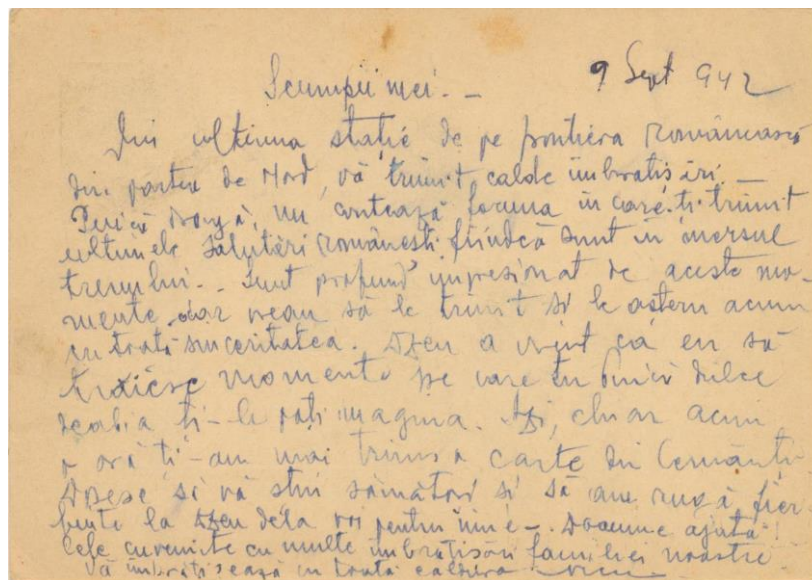 Scumpii mei. -
9 Sept 942
Din ultima stație de pe frontiera românească
din partea de Nord, vă trimit calde îmbrățișeri
Puică dragă, nu contează forma în care-ți trimit
ultimele salutări românești fiindcă sunt în mersul
trenului. - Sunt profund impresionat de aceste mo-
mente, dar vreau să le trimit și le aștern acum
cu toată sinceritatea. Dzeu a vrut ca eu să
trăiesc momente pe care tu Puică dulce
deabia ți-le poți imagina. Azi, chiar acum
o oră ți-am mai trimis o carte din Cernăuți
Doresc să vă știu sănătoși și să am ruga fier-
binte la Dzeu dela voi pentru mine -. Doamne ajută!
Cele cuvenite cu multe îmbrățișări familiei noastre
Vă îmbrățișează cu toată căldura